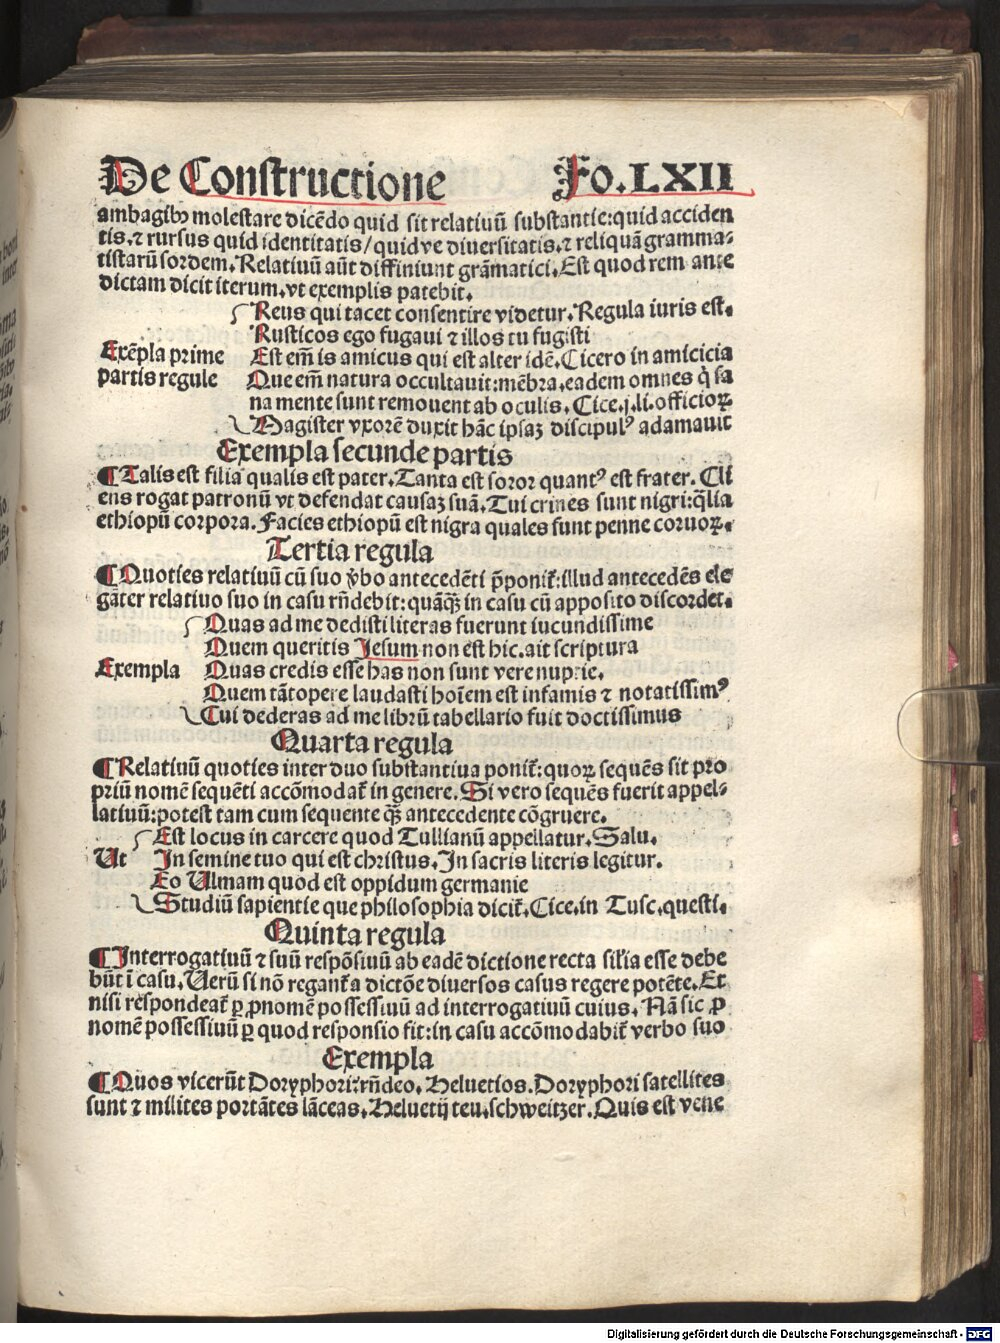 De Constructione Fo. LXII
ambagibꝰ molestare dicēdo quid sit relatiuū substantie: quid acciden
tis. ⁊ rursus quid identitatis/ quid ve diuersitatis. ⁊ reliquā gramma⸗
tistarū sordem. Relatiuū aūt diffiniunt grāmatici. Est quod rem ante
dictam dicit iterum. vt exemplis patebit.
Reus qui tacet consentire videtur. Regula iuris est.
Rusticos ego fugaui ⁊ illos tu fugisti
Exēpla prime Est em̄ is amicus qui est alter idē. Cicero in amicicia
partis regule Que em̄ natura occultauit: mēbra. eadem omnes q̇ sa
na mente sunt remouent ab oculis. Cice. j. li. officioꝝ
Magister vxorē duxit hāc ipsaꝫ discipulꝰ adamauit
Exempla secunde partis
¶ Talis est filia qualis est pater. Tanta est soror quantꝰ est frater. Cli
ens rogat patronū vt defendat causaꝫ suā. Tui crines sunt nigri: q̄lia
ethiopū corpora. Facies ethiopū est nigra quales sunt penne coruoꝝ.
Tertia regula
¶ Quoties relatiuū cū suo v̄bo antecedēti p̄ponit᷑: illud antecedēs ele
gāter relatiuo suo in casu rn̄debit: quāqꝫ in casu cū apposito discordet.
Quas ad me dedisti literas fuerunt iucundissime
Quem queritis Jesum non est hic. ait scriptura
Exempla Quas credis esse has non sunt vere nuptie.
Quem tātopere laudasti hoīem est infamis ⁊ notatissimꝰ
Cui dederas ad me librū tabellario fuit doctissimus
Quarta regula
¶ Relatiuū quoties inter duo substantiua ponit᷑: quoꝝ sequēs sit pro
priū nomē sequēti accōmodat᷑ in genere. Si vero sequēs fuerit appel⸗
latiuū: potest tam cum sequente qꝫ antecedente cōgruere.
Est locus in carcere quod Tullianū appellatur. Salu.
Ut In semine tuo qui est christus. In sacris literis legitur.
Eo Ulmam quod est oppidum germanie
Studiū sapientie que philosophia dicit᷑. Cice. in Tusc. questi.
Quinta regula
¶ Interrogatiuū ⁊ suū respōsiuū ab eadē dictione recta sil̄ia esse debe
būt ī casu. Uerū si nō regant᷑ a dictōe diuersos casus regere potēte. Et
nisi respondeat᷑ ꝑ ꝓnomē possessiuū ad interrogatiuū cuius. Nā sic ꝓ
nomē possessiuū ꝑ quod responsio fit: in casu accōmodabit᷑ verbo suo
Exempla
¶ Quos vicerūt Doryphori? rn̄deo. Heluetios. Doryphori satellites
sunt ⁊ milites portātes lāceas. Heluetij teu. schweitzer. Quis est vene
Digitalisierung gefördert durch die Deutsche Forschungsgemeinschaft - DFG